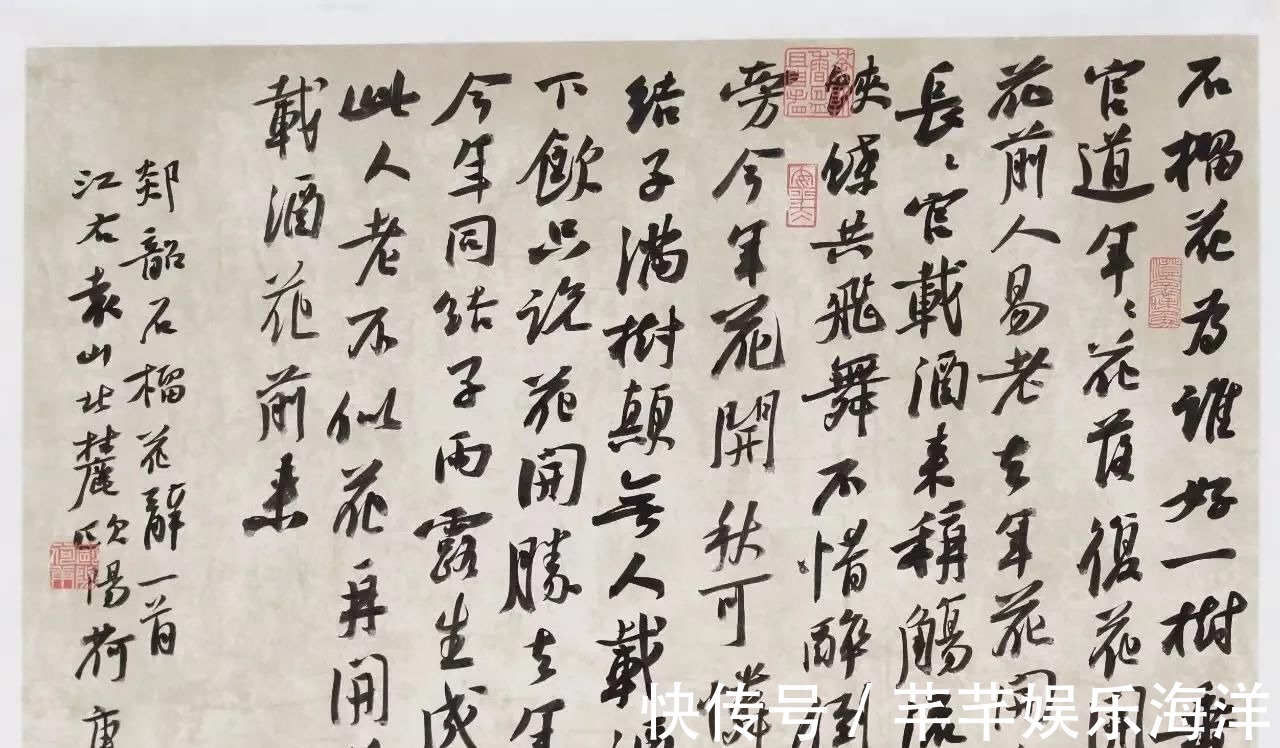 石榴花為誰好一樹
官道年〻花落復花開
花前人易老去年花開
長〻官載酒来稱觴
蛺蝶共飛舞不惜醉倒
旁今年花開秋可憐
结子满樹顛無人載酒
下飲只说花開勝去年
今年同结子雨露生成
此人老不似花再開
載酒花前来
郯韶石榴花辭一首
江右袁山北麓欧陽荷庚
快传号 / 芊芊娱乐海洋